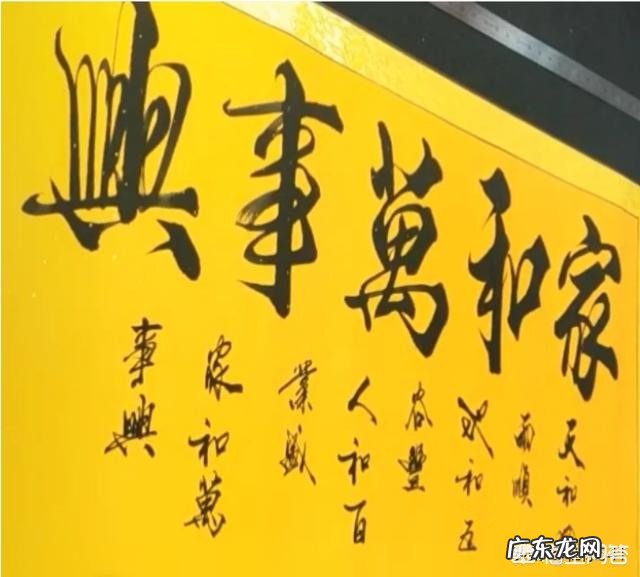 家和萬事興
天和
雨順
地和五
谷豐
人和百
業盛
家和萬
事興
广东龙网